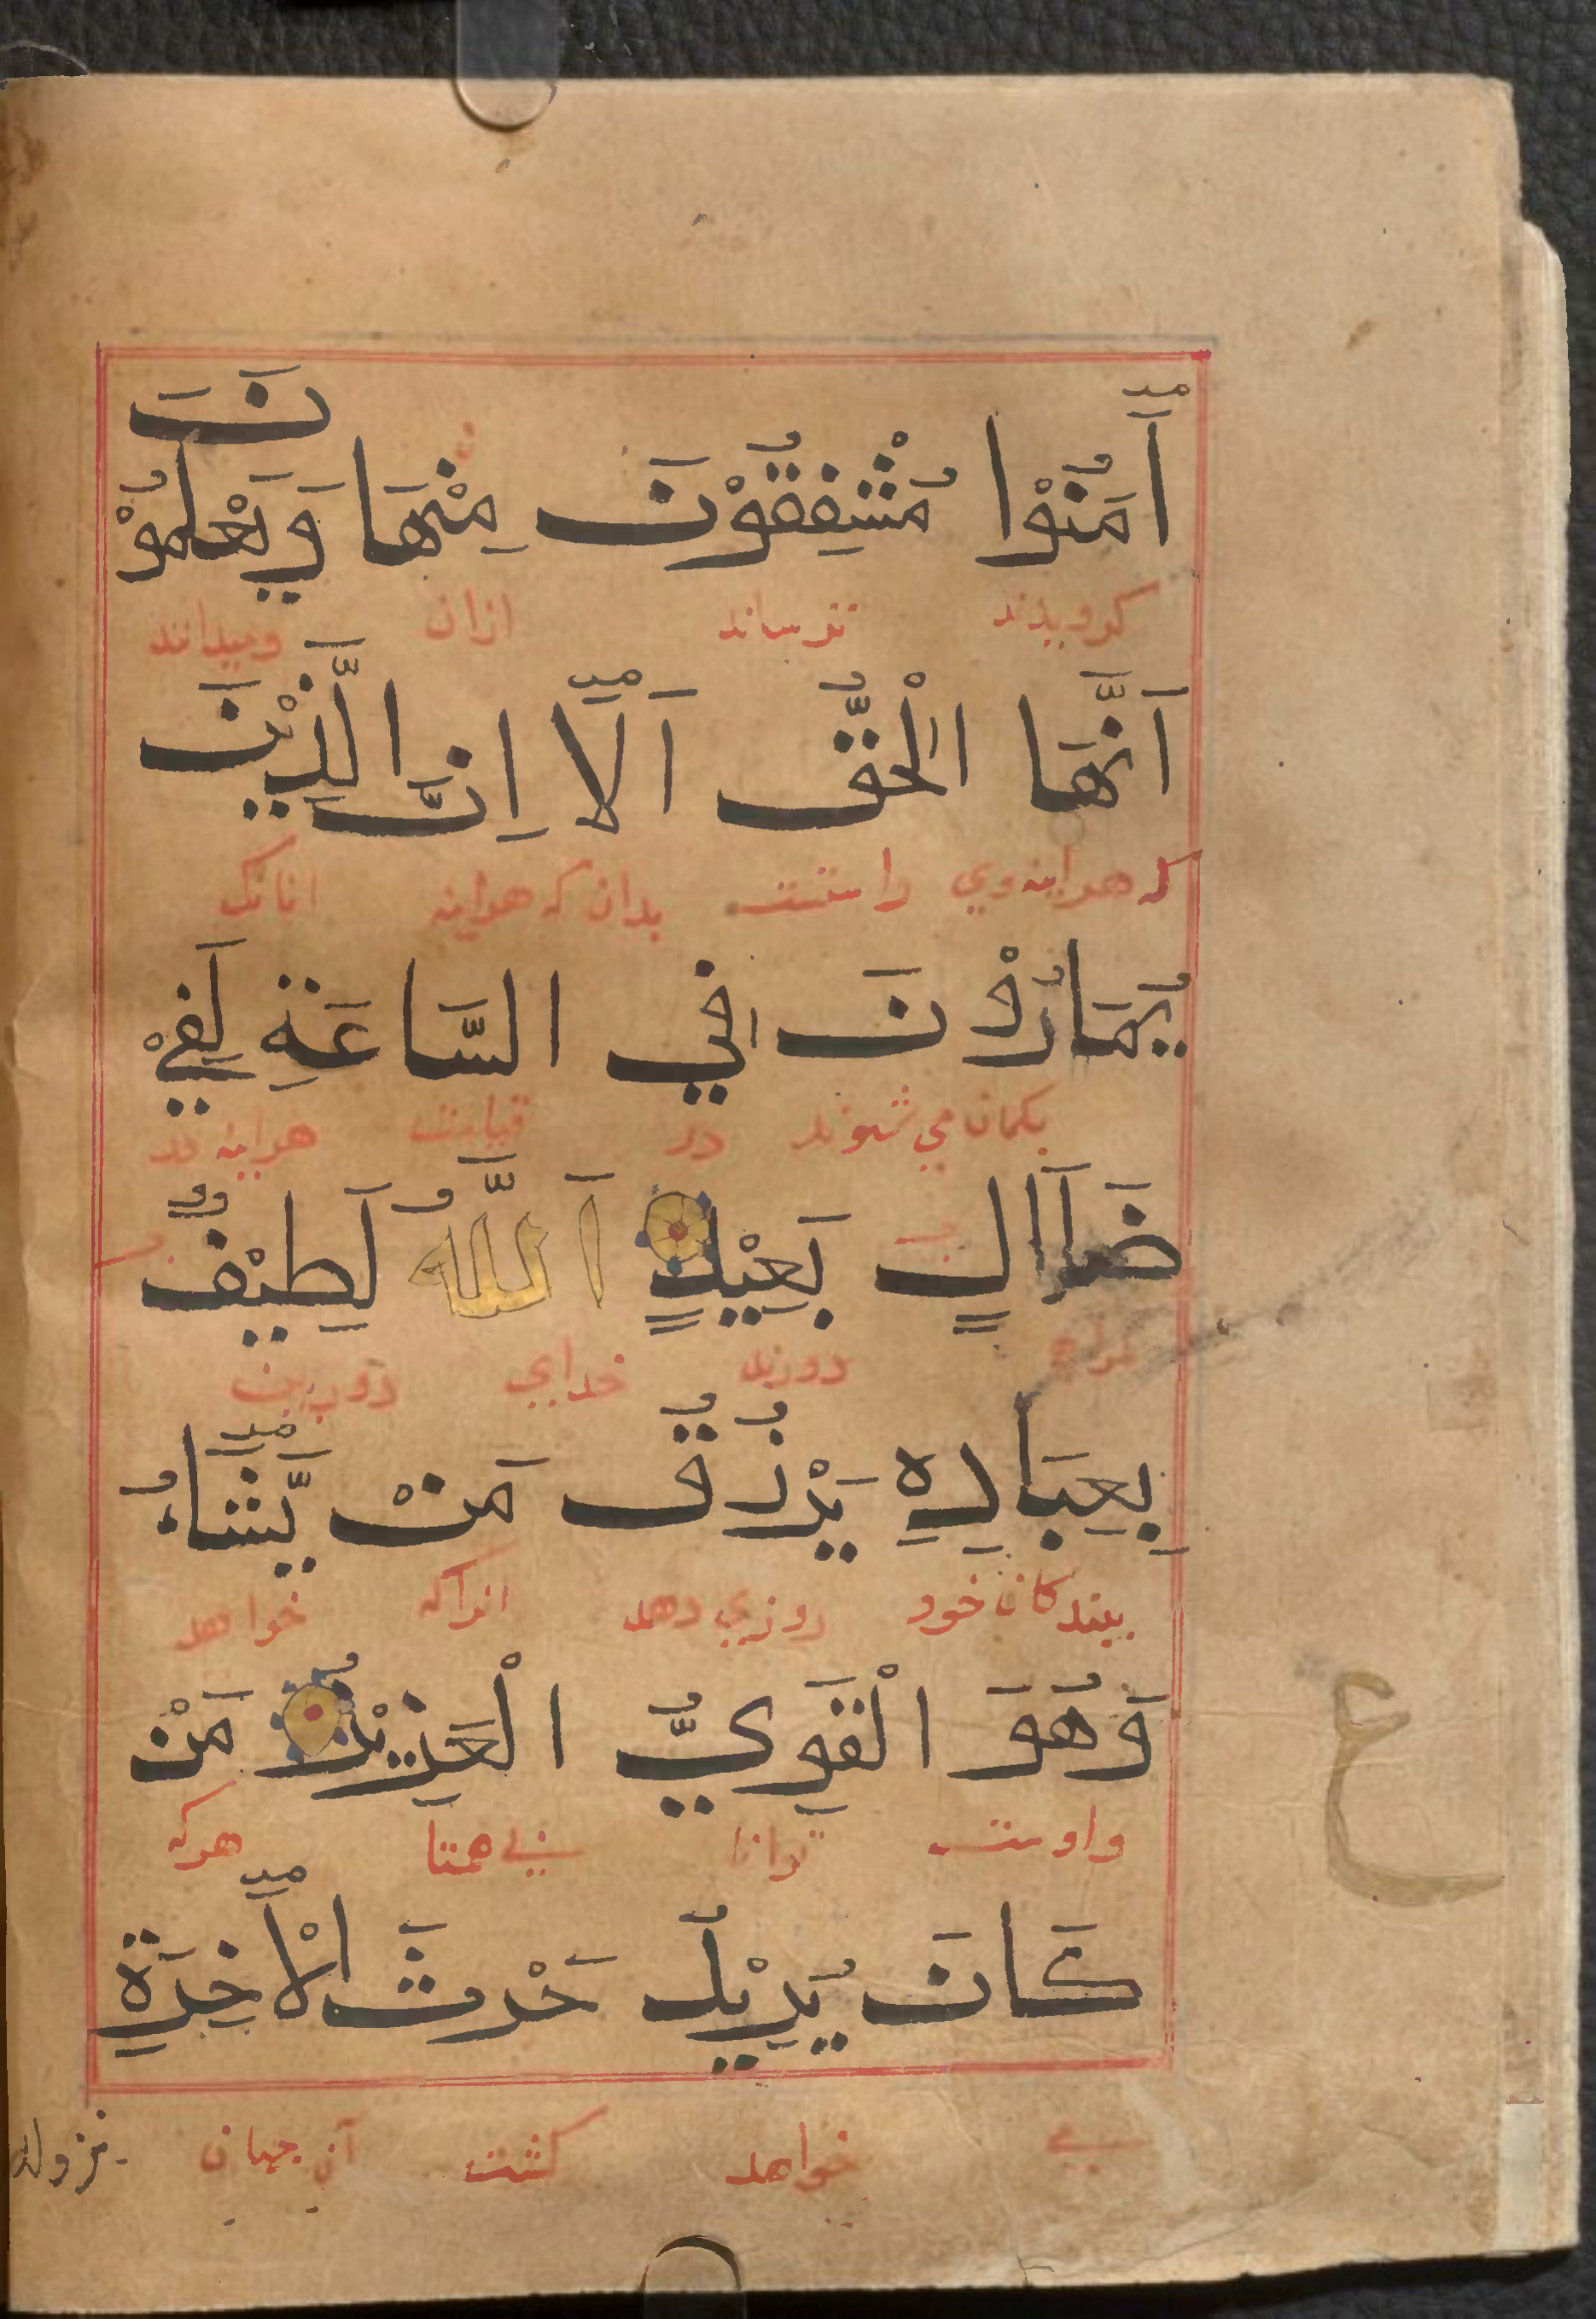 اٰمَنُوْا مُشْفِقُوْنَ مِنْهَا وَيَعْلَمُوْنَ
كرويدند ترساند ازان وميدانند
اَنَّهَا الْحَقُّ اَلَآ اِنَّ الَّذِيْنَ
كه هراينه وي راستست بدان كه هراينه انانك
يُمَارُوْنَ فِي السَّاعَةِ لَفِيْ
بكمان مي شوند در قيامت هراينه در
ضَلَالٍ بَعِيْدٍ اَللَّهُ لَطِيْفٌ
دورند خداي دوربين
بِعِبَادِهِ يَرْزُقُ مَنْ يَّشَآءُ
ببندكان خود روزي دهد انراكه خواهد
وَهُوَ الْقَوِيُّ الْعَزِيْزُ مَنْ
واوست توانا بي همتا هركه
ع
كَانَ يُرِيْدُ حَرْثَ الْاٰخِرَةِ
خواهد كشت آن جهان
نزدله